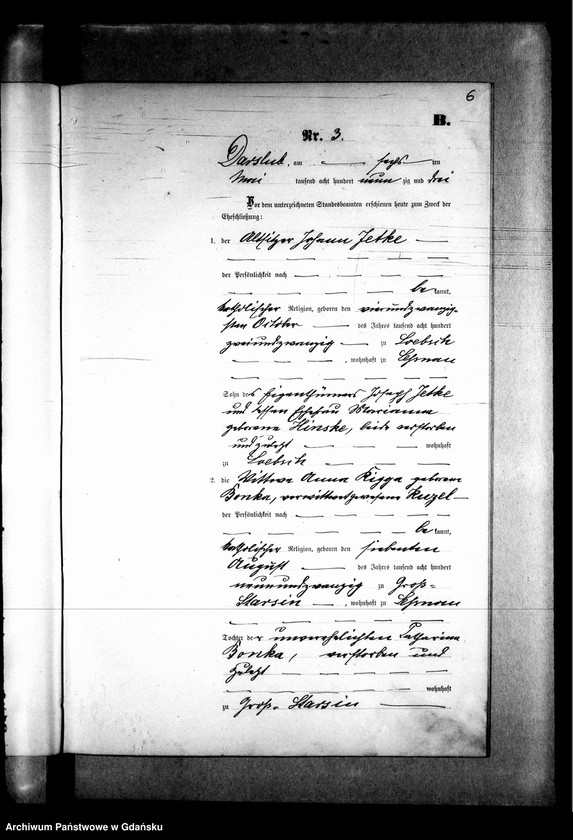 6
B.
Nr. 3.
Darslub, am sechs ten
Mai tausend acht hundert neun zig und drei
Vor dem unterzeichneten Standesbeamten erschienen heute zum Zweck der
Eheschließung:
1. der Altsitzer Johann Jetke
der Persönlichkeit nach
be kannt,
katholischer Religion, geboren den vierundzwanzig-
sten October des Jahres tausend acht hundert
zweiundzwanzig zu Loebsch
, wohnhaft zu Lesnau
Sohn des Eigenthümers Joseph Jetke
und dessen Ehefrau Marianna
geborene Hinske, beide verstorben
und zuletzt wohnhaft
zu Loebsch
2. die Wittwe Anna Rigga geborene
Bonka, verwittwet gewesene Kuzel
der Persönlichkeit nach
be kannt,
katholischer Religion, geboren den siebenten
August des Jahres tausend acht hundert
neunundzwanzig zu Groß-
Starsin , wohnhaft zu Lesnau
Tochter der unverehelichten Catharina
Bonka, verstorben und
zuletzt
wohnhaft
zu Groß-Starsin
Archiwum Państwowe w Gdańsku